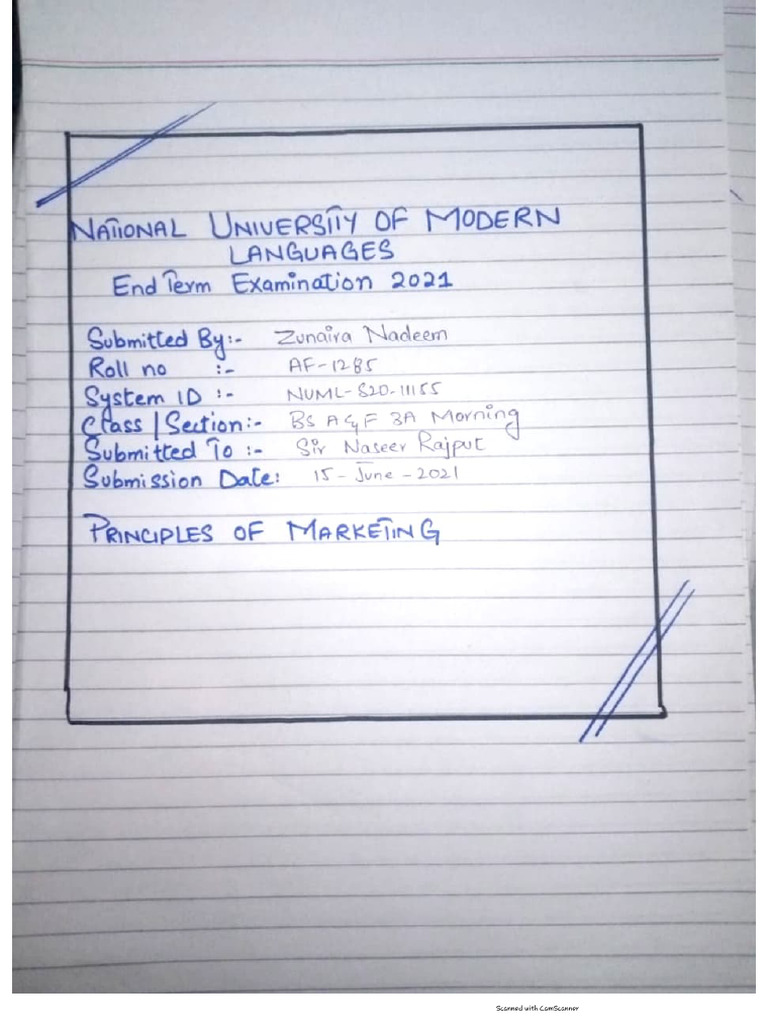 NATIONAL UNIVERSITY OF MODERN
LANGUAGES
End Term Examination 2021
Submitted By:- Zunaira Nadeem
Roll no :- AF-1285
System ID :- NUML-S20-11155
Class / Section:- BS A&F 3A Morning
Submitted To :- Sir Naseer Rajput
Submission Date: 15 - June - 2021
PRINCIPLES OF MARKETING
Scanned with CamScanner